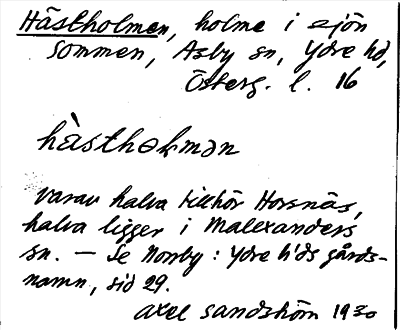 Hästholmen, holme i sjön
Sommen, Asby sn, Ydre hd,
Österg. l. 16
hàsthəḷmən
varav halva tillhör Horsnäs,
halva ligger i Malexanders
sn. — Se Norrby: Ydre h:ds gårds-
namn, sid 29.
Axel Sandström 1930